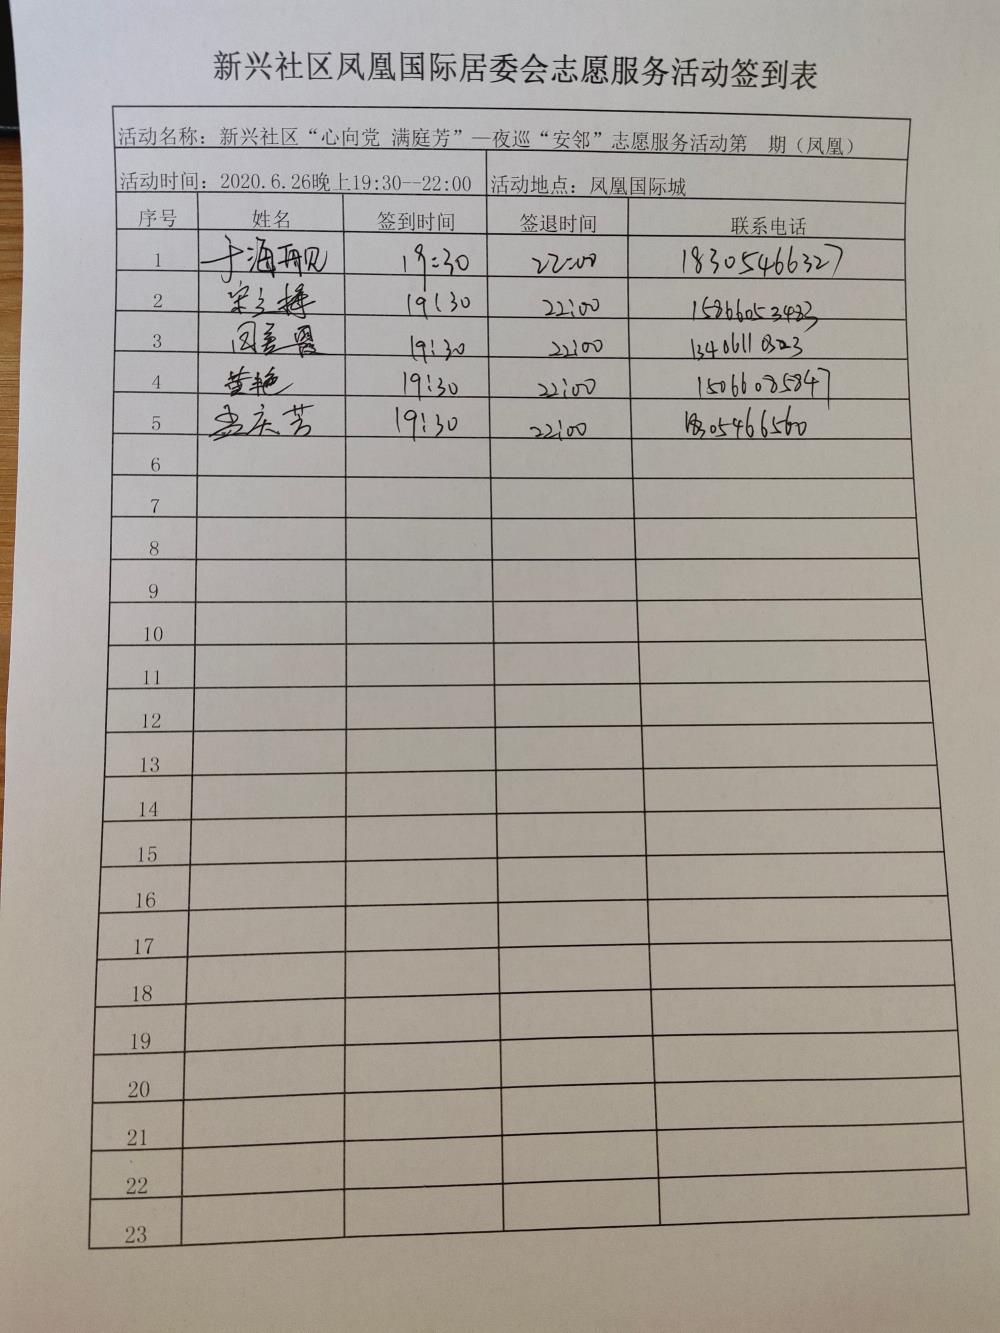 新兴社区凤凰国际居委会志愿服务活动签到表
活动名称：新兴社区“心向党 满庭芳”—夜巡“安邻”志愿服务活动第 期（凤凰）
活动时间：2020.6.26晚上19:30--22:00 活动地点：凤凰国际城
序号 姓名 签到时间 签退时间 联系电话
1 于海 19:30 22:00 18305466327
2 宋 19:30 22:00 15866053483
3 19:30 22:00
4 黄艳 19:30 22:00 15066085847
5 孟庆芳 19:30 22:00 18305466560
6
7
8
9
10
11
12
13
14
15
16
17
18
19
20
21
22
23